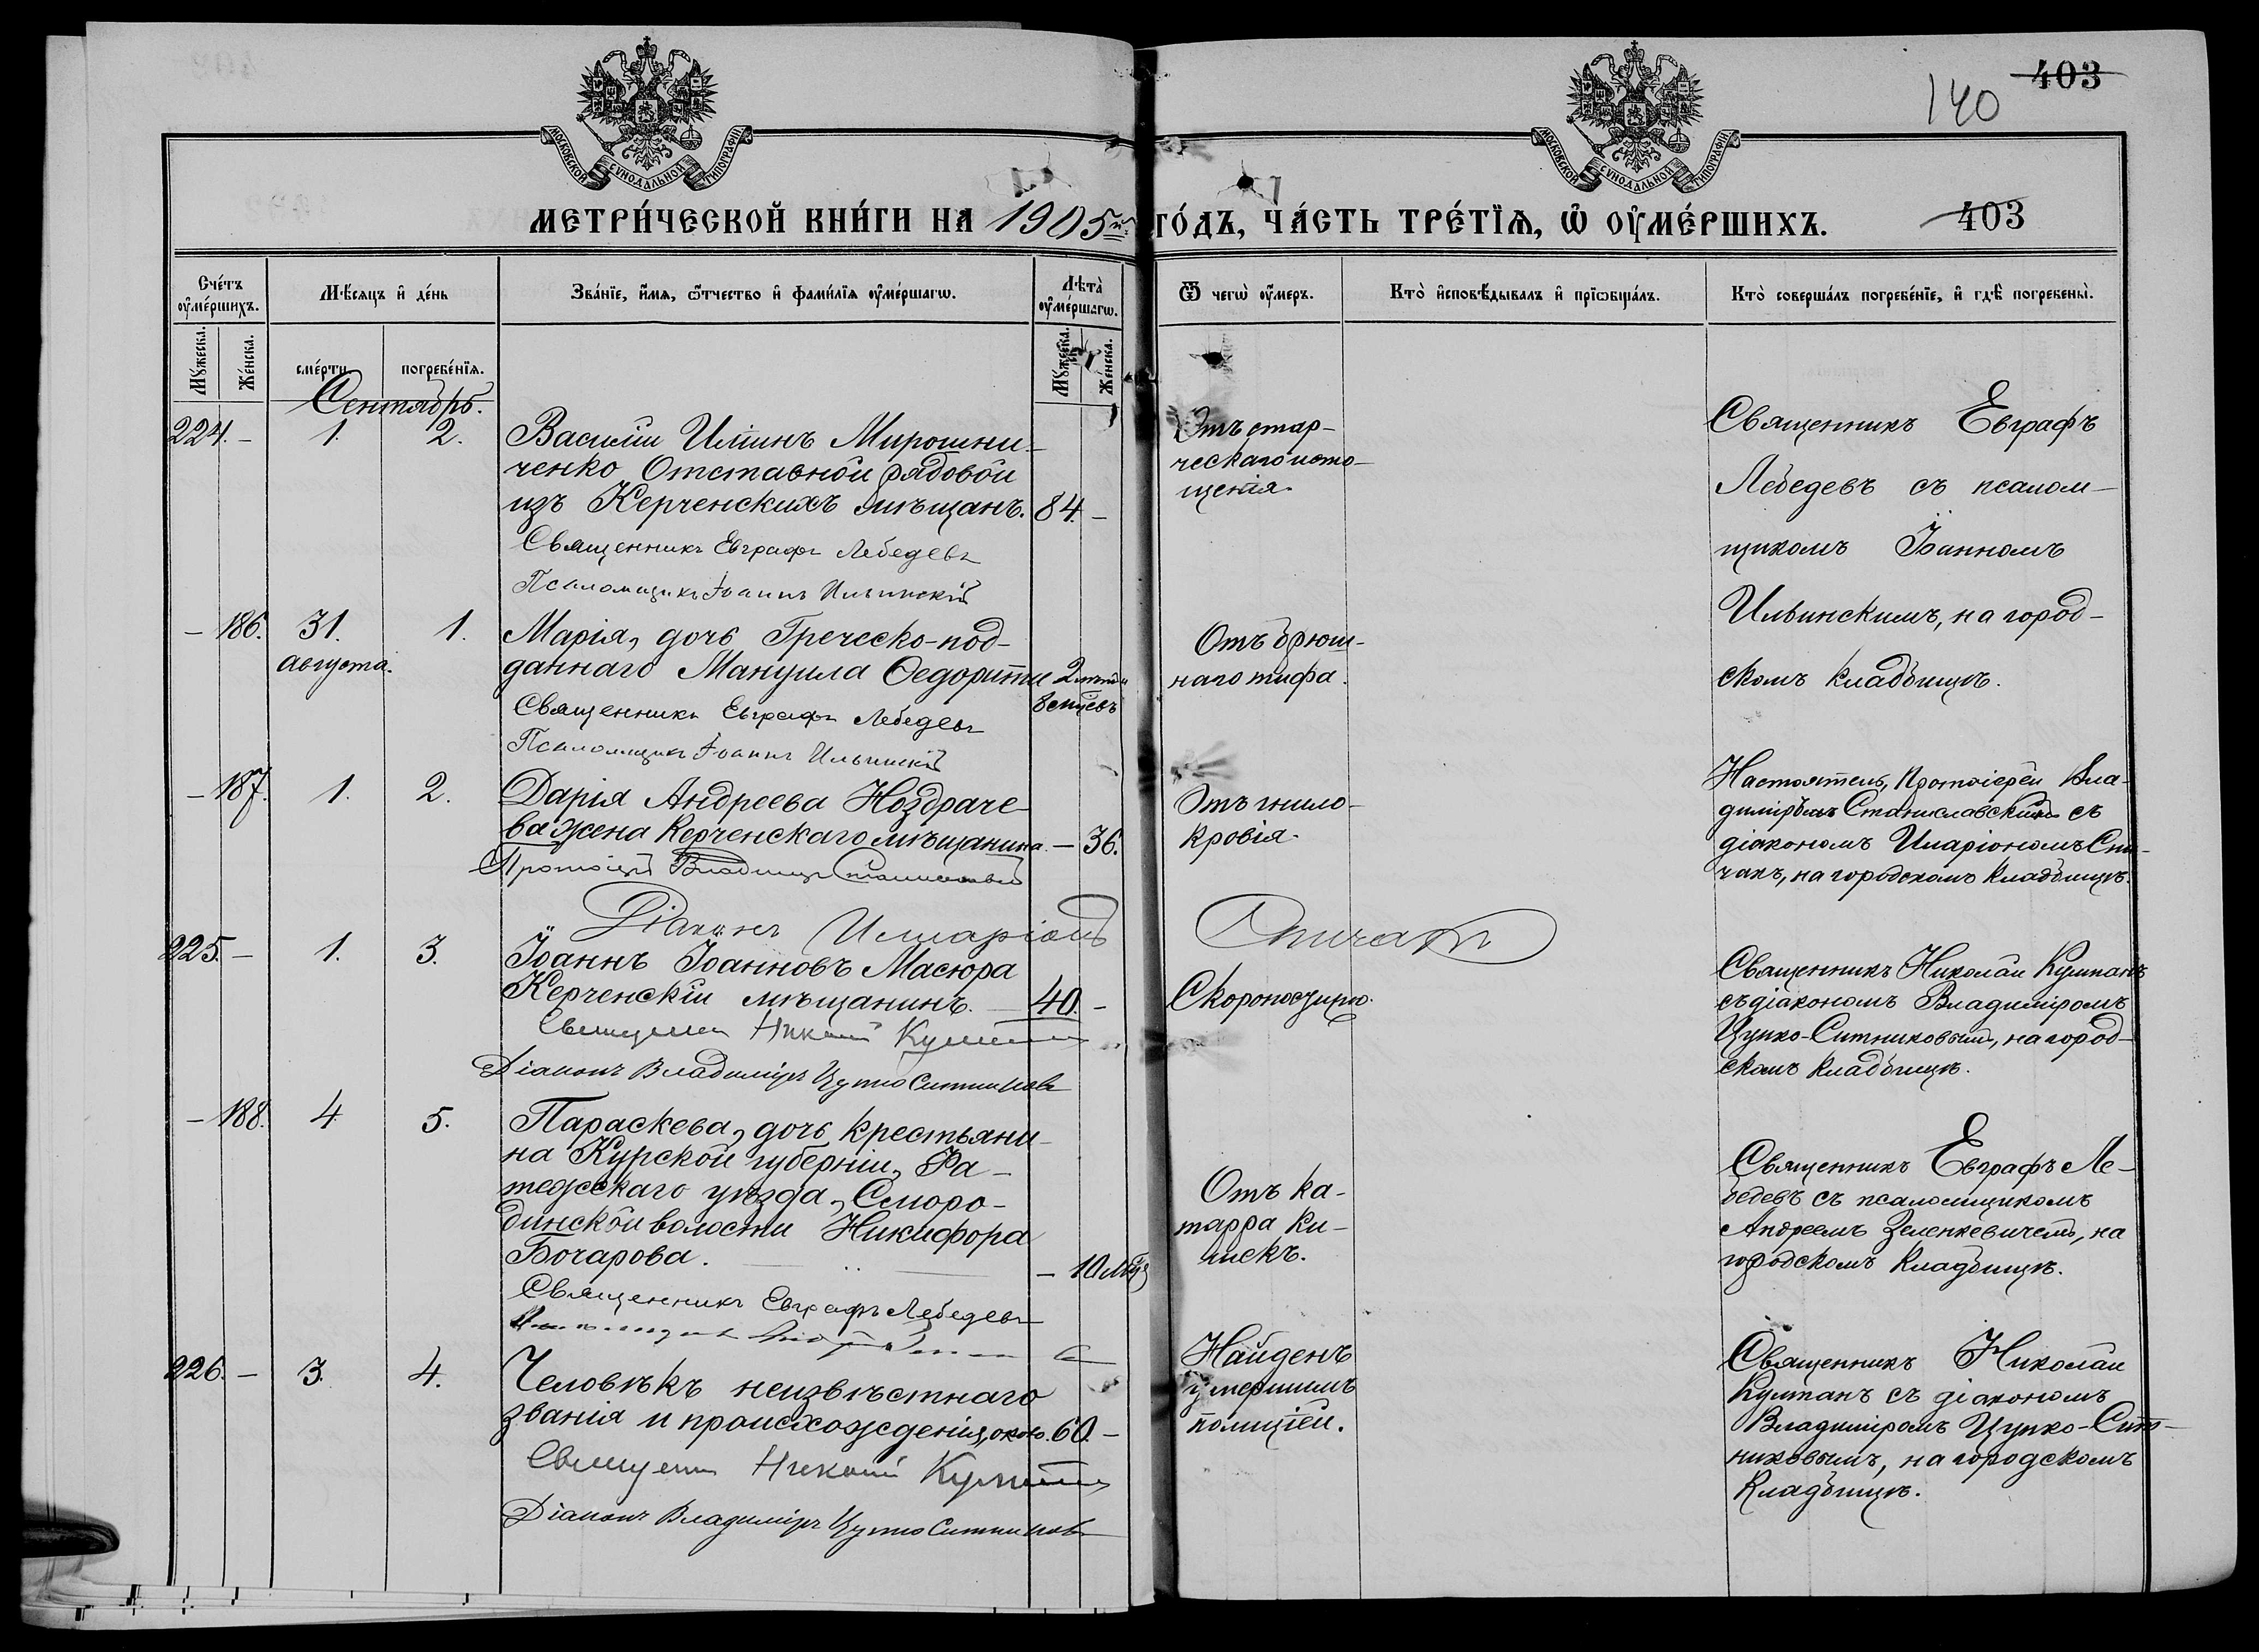 403
140
МОСКОВСКОЙ СѴНОДАЛЬНОЙ ТИПОГРАФІИ
МОСКОВСКОЙ СѴНОДАЛЬНОЙ ТИПОГРАФІИ
МЕТРИ́ЧЕСКОЙ КНИ́ГИ НА 1905й ГО́ДЪ, ЧА́СТЬ ТРЕ́ТЇѦ, Ѡ҆ ОУ҆МЕ́РШИХЪ. 403
Сче́тъ оу҆ме́ршихъ.
Мѣ́сяцъ и҆ де́нь
Зва́нїе, и҆́мя, ѻ҆́тчество и҆ фами́лїя оу҆ме́ршагѡ.
Лѣта̀ оу҆ме́ршагѡ.
Ѿ чегѡ̀ оу҆́меръ.
Кто̀ и҆сповѣ́дывалъ и҆ прїѡбща́лъ.
Кто̀ соверша́лъ погребе́нїе, и҆ гдѣ̀ погребены̀.
Мꙋ́жеска.
Же́нска.
сме́рти.
погребе́нїя.
Мꙋ́жеска.
Же́нска.
Сентябрь.
224. – 1. 2.
Василій Ильинъ Мирошни-
ченко Отставной рядовой
изъ Керченскихъ мѣщанъ. 84. –
Священникъ Евграфъ Лебедевъ
Псаломщикъ Іоаннъ Ильинскій
Отъ стар-
ческаго исто-
щенія.
Священникъ Евграфъ
Лебедевъ съ псалом-
щикомъ Іоанномъ
Ильинскимъ, на город-
скомъ кладбищѣ.
– 186. 31. 1.
Августа.
Марія, дочь Греческо-под-
даннаго Мануила Ѳедорити 2
Священникъ Евграфъ Лебедевъ
Псаломщикъ Іоаннъ Ильинскій
Отъ брюш-
наго тифа.
– 187. 1. 2.
Дарія Андреева Ноздраче-
ва жена Керченскаго мѣщанина. – 36.
Протоіерей Владиміръ Станиславскій
Діаконъ Иларіонъ Спичакъ
Отъ гнило-
кровія.
Настоятель, Протоіерей Вла-
диміръ Станиславскій съ
діакономъ Иларіономъ Спи-
чакъ, на городскомъ кладбищѣ.
225. – 1. 3.
Іоаннъ Іоанновъ Масюра
Керченскій мѣщанинъ. 40. –
Священникъ Николай Кулпанъ
Діаконъ Владиміръ Цупко Ситниковъ
Скоропостижно.
Священникъ Николай Кулпанъ
съ діакономъ Владиміромъ
Цупко-Ситниковымъ, на город-
скомъ кладбищѣ.
– 188. 4 5.
Параскева, дочь крестьяни-
на Курской губерніи, Фа-
тежскаго уѣзда, Сморо-
динской волости Никифора
Бочарова. – 10 мѣс.
Священникъ Евграфъ Лебедевъ
Отъ ка-
тарра ки-
шекъ.
Священникъ Евграфъ Ле-
бедевъ съ псаломщикомъ
Андреемъ Зеленкевичемъ, на
городскомъ кладбищѣ.
226. – 3. 4.
Человѣкъ неизвѣстнаго
званія и происхожденія, около. 60. –
Священникъ Николай Кулпанъ
Діаконъ Владиміръ Цупко Ситниковъ
Найденъ
умершимъ
полиціей.
Священникъ Николай
Кулпанъ съ діакономъ
Владиміромъ Цупко-Сит-
никовымъ, на городскомъ
кладбищѣ.